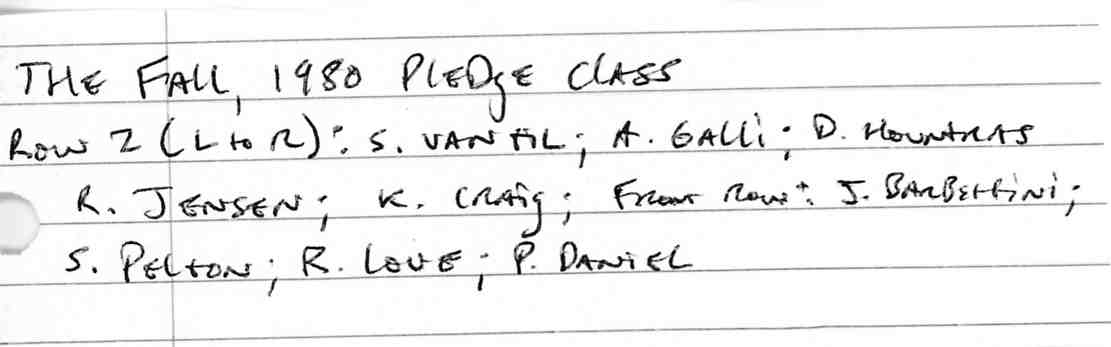 THE FALL, 1980 PLEDGE CLASS
Row 2 (L to R): S. VAN TIL; A. GALLi; D. HOUNTRAS
R. JENSEN; K. CRAig; FRONT Row: J. BARBETTiNi;
S. PELTON; R. LOVE; P. DANiEL